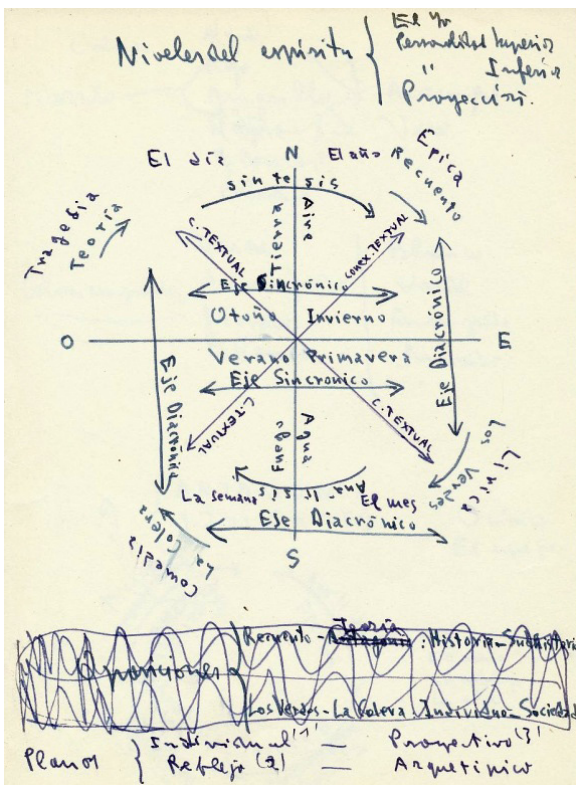 Niveles del espíritu
El Yo
Personalidad Superior
" Inferior
Proyección.
El día
N
El año
Epica
Recuento
sintesis
Tragedia
Teoría
C. TEXTUAL
Tierra
Aire
CONEX. TEXTUAL
Eje Sincrónico
Otoño
Invierno
O
E
Verano
Primavera
Eje Sincronico
Eje Diacrónico
Eje Diacrónico
C. TEXTUAL
C. TEXTUAL
Fuego
Agua
Lirica
Los Verdes
La semana
Aná-lisis
El mes
Comedia
La Colera
Eje Diacrónico
S
Oposiciones
Teoría
Recuento - : Historia - Subhistoria
Los Verdes - La Colera : Individuo - Sociedad
Planos
Individual (1) — Proyectivo (3)
Reflejo (2) — Arquetipico